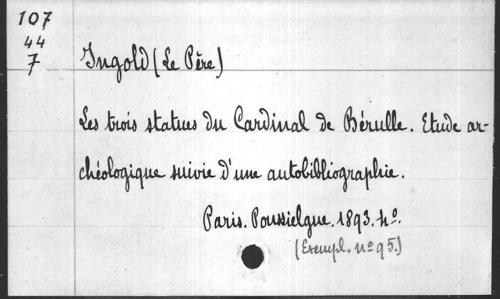 107
44
7
Ingold (Le Père)
Les trois statues du Cardinal de Bérulle. Etude ar-
chéologique suivie d'une autobibliographie.
Paris. Poussielgue. 1893. 4o.
(Exempl. no 95.)